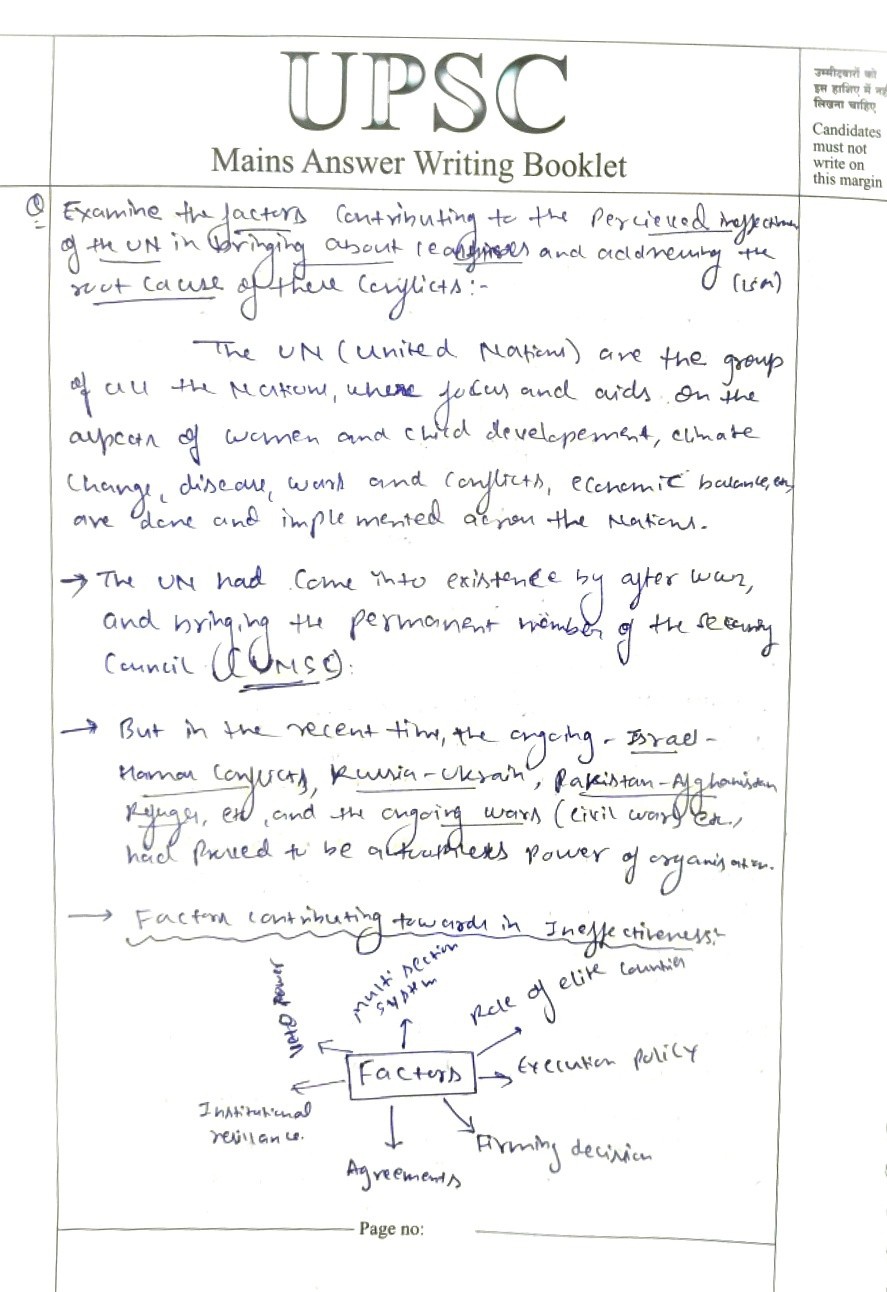 UPSC
Mains Answer Writing Booklet
उम्मीदवारों को
इस हाशिए में नहीं
लिखना चाहिए
Candidates
must not
write on
this margin
Q Examine the factors contributing to the Percieved
of the UN in bringing about and addressing the
root cause of these Conflicts :- (15m)
The UN (United Nations) are the group
of all the Nations, where focus and aids on the
aspects of women and child developement, climate
Change, disease, wars and conflicts, economic balance, etc,
are done and implemented across the Nations.
→ The UN had come into existence by after war,
and bringing the permanent member of the security
Council (UNSC).
→ But in the recent time, the ongoing - Israel -
Hamas Conflicts, Russia - Ukrain, Pakistan - Afghanistan
Refugee, etc, and the ongoing wars (civil wars) etc.,
had Proved to be a power of organisation.
→ Factors contributing towards in Ineffectiveness:-
Veto Power
Multi section
system
Role of elite countries
Factors
Execution Policy
Institutional
Agreements
Firming decision
Page no: